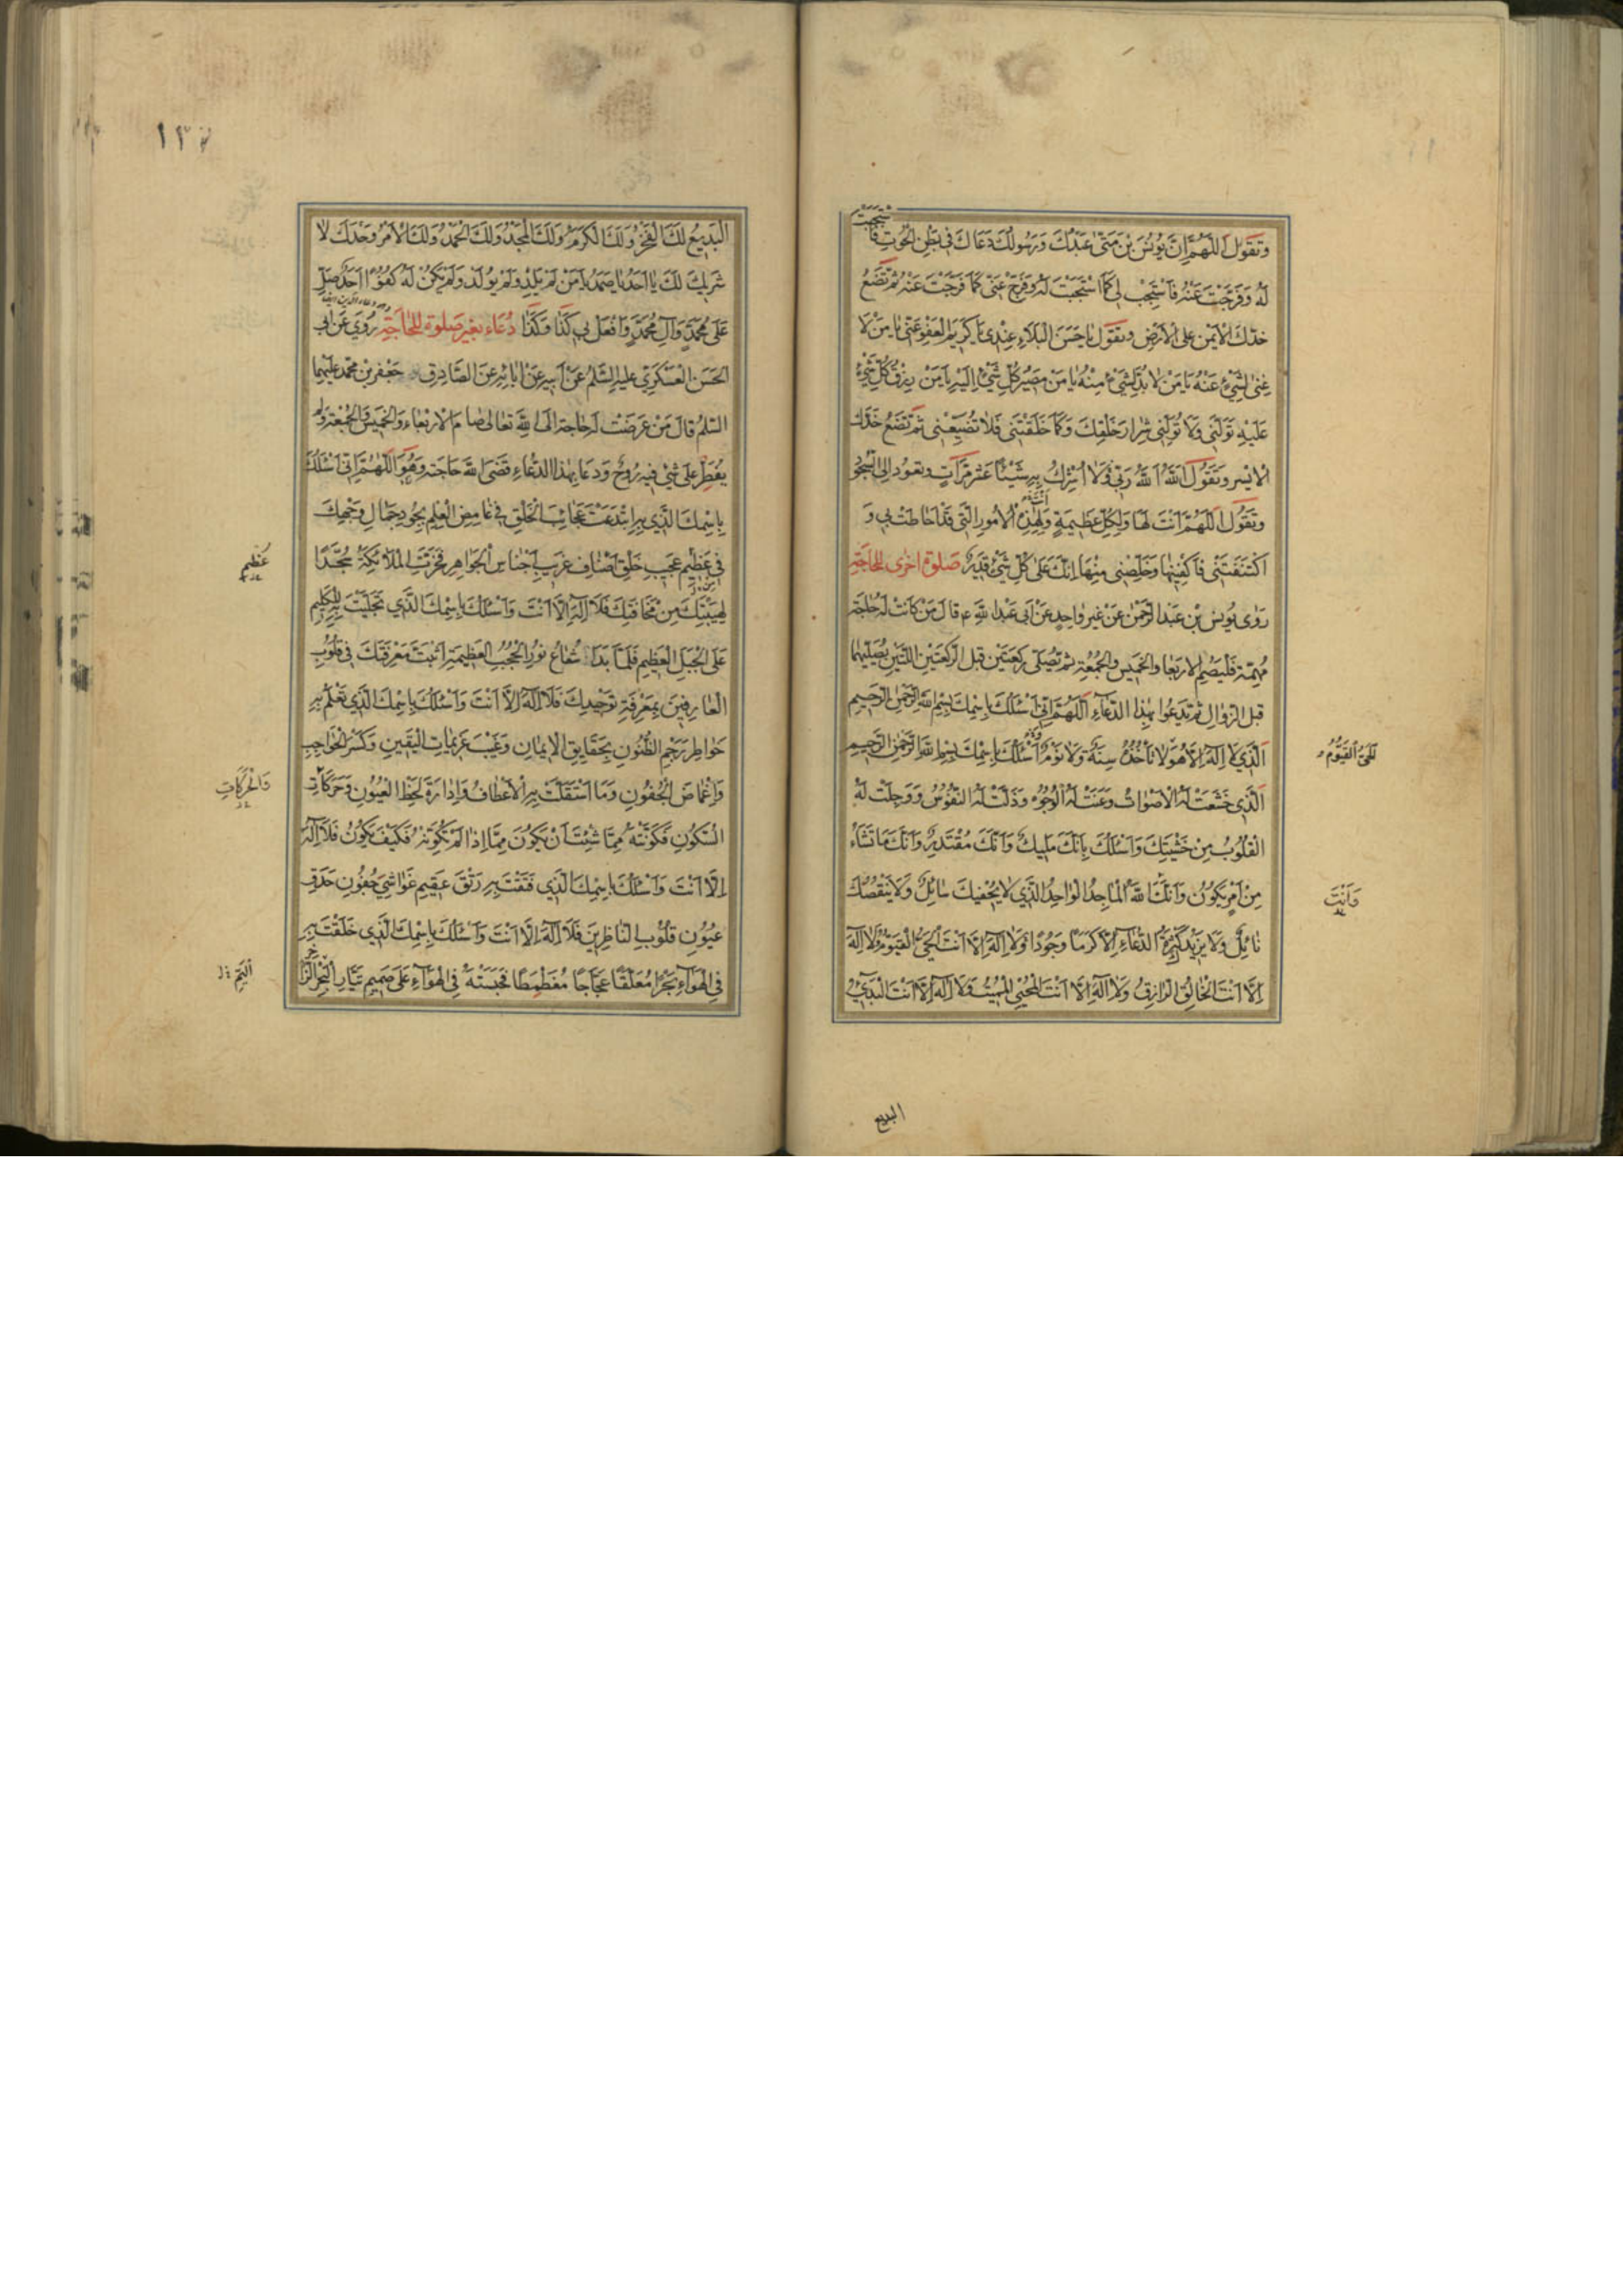 وَتَقُولُ اَللّٰهُمَّ اِنَّ يُونُسَ بْنَ مَتّىٰ عَبْدُكَ وَرَسُولُكَ دَعَاكَ فى بَطْنِ الحُوتِ فَاسْتَجَبْتَ
لَهُ وَفَرَّجْتَ عَنْهُ فَاسْتَجِبْ لى كَمَا اسْتَجَبْتَ لَهُ وَفَرِّجْ عَنّى كَمَا فَرَّجْتَ عَنْهُ ثُمَّ تَضَعُ
خدّك الاَيْمَن على الاَرْضِ وتَقُول يا حَسَنَ البَلاءِ عِنْدى يا كَرِيمَ العَفْوِ عَنّى يا مَنْ لا
غِنىٰ لِشَىْءٍ عَنْهُ يا مَنْ لا بُدَّ لِشَىْءٍ مِنْهُ يا مَنْ مَصِيرُ كُلِّ شَىْءٍ اِلَيْهِ يا مَنْ رِزْقُ كُلِّ شَىْءٍ
عَلَيْهِ تَوَلَّنى وَلا تُوَلِّنى شِرارَ خَلْقِكَ وَكَمَا خَلَقْتَنى فَلا تُضَيِّعْنى ثُمَّ تَضَعُ خَدَّك
الايْسر وتَقُول اَللهُ اَللهُ رَبّى وَلا اُشْرِكُ بِهِ شَيْئًا عَشرَ مَرّاتٍ وتعُود الى السُّجُود
وتَقُول اَللّٰهُمَّ اَنْتَ لَها وَلِكُلِّ عَظِيمَةٍ وَلِهٰذِهِ الاُمُورِ الَّتى قَدْ اَحَاطَتْ بى وَ
اكْتَنَفَتْنى فَاكْفِنِيها وَخَلِّصْنى مِنْها اِنَّكَ عَلىٰ كُلِّ شَىْءٍ قَدِيرٌ صَلوة اُخرى للحاجَةِ
رَوٰى يُونس بْن عَبْدالرّحْمٰن عَنْ غير واحِدٍ عَنْ اَبى عَبْدالله ع قالَ مَنْ كَانَتْ لَهُ حٰاجَة
مُهِمَّة فَليَصُم الاربعا والخَميس والجُمعَة ثم يُصَلّى رَكعتَيْن قَبل الركعتَيْن اللّتين يُصَلّيهما
قبل الزّوالِ ثم يَدعُوا بهذا الدّعاءِ اَللّٰهُمَّ اِنّى اَسْئَلُكَ بِاسْمِكَ بِسْمِ اللهِ الرَّحْمٰنِ الرَّحِيمِ
اَلَّذى لا اِلٰهَ اِلاّ هُوَ لا تَأْخُذُهُ سِنَةٌ وَلا نَوْمٌ اَسْئَلُكَ بِاسْمِكَ بِسْمِ اللهِ الرَّحْمٰنِ الرَّحِيمِ
اَلحَىُّ القَيُّومُ
اَلَّذى خَشَعَتْ لَهُ الاَصْوَاتُ وَعَنَتْ لَهُ الوُجُوهُ وَذَلَّتْ لَهُ النُّفُوسُ وَوَجِلَتْ لَهُ
القُلُوبُ مِنْ خَشْيَتِكَ وَاَسْئَلُكَ بِاَنَّكَ مَلِيكٌ وَاَنَّكَ مُقْتَدِرٌ وَاَنَّكَ مَا تَشَاءُ
مِنْ اَمْرٍ يَكُونُ وَاَنَّكَ اللهُ المَاجِدُ الوَاحِدُ الَّذى لا يُحْفِيكَ سَائِلٌ وَلا يَنْقُصُكَ
وَاَنْتَ
نَائِلٌ وَلا يَزِيدُكَ كَثْرَةُ الدُّعَاءِ اِلاّ كَرَمًا وَجُودًا وَلا اِلٰهَ اِلاّ اَنْتَ الحَىُّ القَيُّومُ وَلا اِلٰهَ
اِلاّ اَنْتَ الخَالِقُ الرَّازِقُ وَلا اِلٰهَ اِلاّ اَنْتَ المُحْيِى المُمِيتُ وَلا اِلٰهَ اِلاّ اَنْتَ البَدِىءُ
البديع
البَدِيعُ لَكَ الفَخْرُ وَلَكَ الكَرَمُ وَلَكَ المَجْدُ وَلَكَ الحَمْدُ وَلَكَ الاَمْرُ وَحْدَكَ لا
شَرِيكَ لَكَ يا اَحَدُ يا صَمَدُ يا مَنْ لَمْ يَلِدْ وَلَمْ يُولَدْ وَلَمْ يَكُنْ لَهُ كُفُوًا اَحَدٌ صَلِّ
عَلىٰ مُحَمَّدٍ وَآلِ مُحَمَّدٍ وَافْعَلْ بى كَذَا وَكَذَا دُعَاء بغير صَلوة للحاجَةِ رُوِىَ عَنْ اَبى
الحَسَن العَسْكَرى عليه السّلم عَنْ اَبيه عَنْ ابائه عَن الصَّادِق جَعْفر بن محمّد عليهما
السّلم قال مَنْ عَرَضَتْ لَه حاجة الى الله تعالى صام الاربعاء والخميس والجُمعَة ولم
يُفطِر على شىء فيه رُوحٌ وَدَعَا بهذا الدّعاءِ قَضَى الله حَاجَته وَهُو اَللّٰهُمَّ اِنّى اَسْئَلُكَ
بِاسْمِكَ الَّذى بِهِ ابْتَدَعْتَ عَجَائِبَ الخَلْقِ فى غَامِضِ العِلْمِ بِجُودِ جَمَالِ وَجْهِكَ
فى عَظِيمِ عَجِيبِ خَلْقِ اَصْنَافِ غَرِيبِ اَجْنَاسِ الجَوَاهِرِ فَخَرَّتِ المَلائِكَةُ سُجَّدًا
عَظِيمِ
لِهَيْبَتِكَ مِنْ مَخَافَتِكَ فَلا اِلٰهَ اِلاّ اَنْتَ وَاَسْئَلُكَ بِاسْمِكَ الَّذى تَجَلَّيْتَ بِهِ لِلْكَلِيمِ
عَلَى الجَبَلِ العَظِيمِ فَلَمّا بَدَا شُعَاعُ نُورِ الحُجُبِ العَظِيمَةِ اَثْبَتَّ مَعْرِفَتَكَ فى قُلُوبِ
العَارِفِينَ بِمَعْرِفَةِ تَوْحِيدِكَ فَلا اِلٰهَ اِلاّ اَنْتَ وَاَسْئَلُكَ بِاسْمِكَ الَّذى تَعْلَمُ بِهِ
خَوَاطِرَ رَجْمِ الظُّنُونِ بِحَقَايِقِ الاِيمَانِ وَغَيْبَ عَزِيمَاتِ اليَقِينِ وَكَسْرَ الحَوَاجِبِ
وَاِغْمَاضَ الجُفُونِ وَمَا اسْتَقَلَّتْ بِهِ الاَعْطَافُ وَاِدَارَةَ لَحْظِ العُيُونِ وَحَرَكَاتِ
وَالحَرَكَاتِ
السُّكُونِ فَكَوَّنْتَهُ مِمّا شِئْتَ اَنْ يَكُونَ مِمّا اِذَا لَمْ تُكَوِّنْهُ فَكَيْفَ يَكُونُ فَلا اِلٰهَ
اِلاّ اَنْتَ وَاَسْئَلُكَ بِاسْمِكَ الَّذى فَتَقْتَ بِهِ رَتْقَ عَقِيمِ غَوَاشِى جُفُونِ حَدَقِ
عُيُونِ قُلُوبِ النَّاظِرِينَ فَلا اِلٰهَ اِلاّ اَنْتَ وَاَسْئَلُكَ بِاسْمِكَ الَّذى خَلَقْتَ بِهِ
فى الهَوَاءِ بَحْرًا مُعَلَّقًا عَجَّاجًا مُغَطْمِطًا فَحَبَسْتَهُ فى الهَوَاءِ عَلىٰ صَمِيمِ تَيَّارِ البَحْرِ الزَّاخِرِ
اليَمِّ